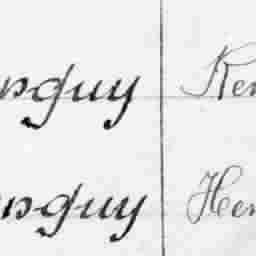 nsguy Ken
nsguy Hen